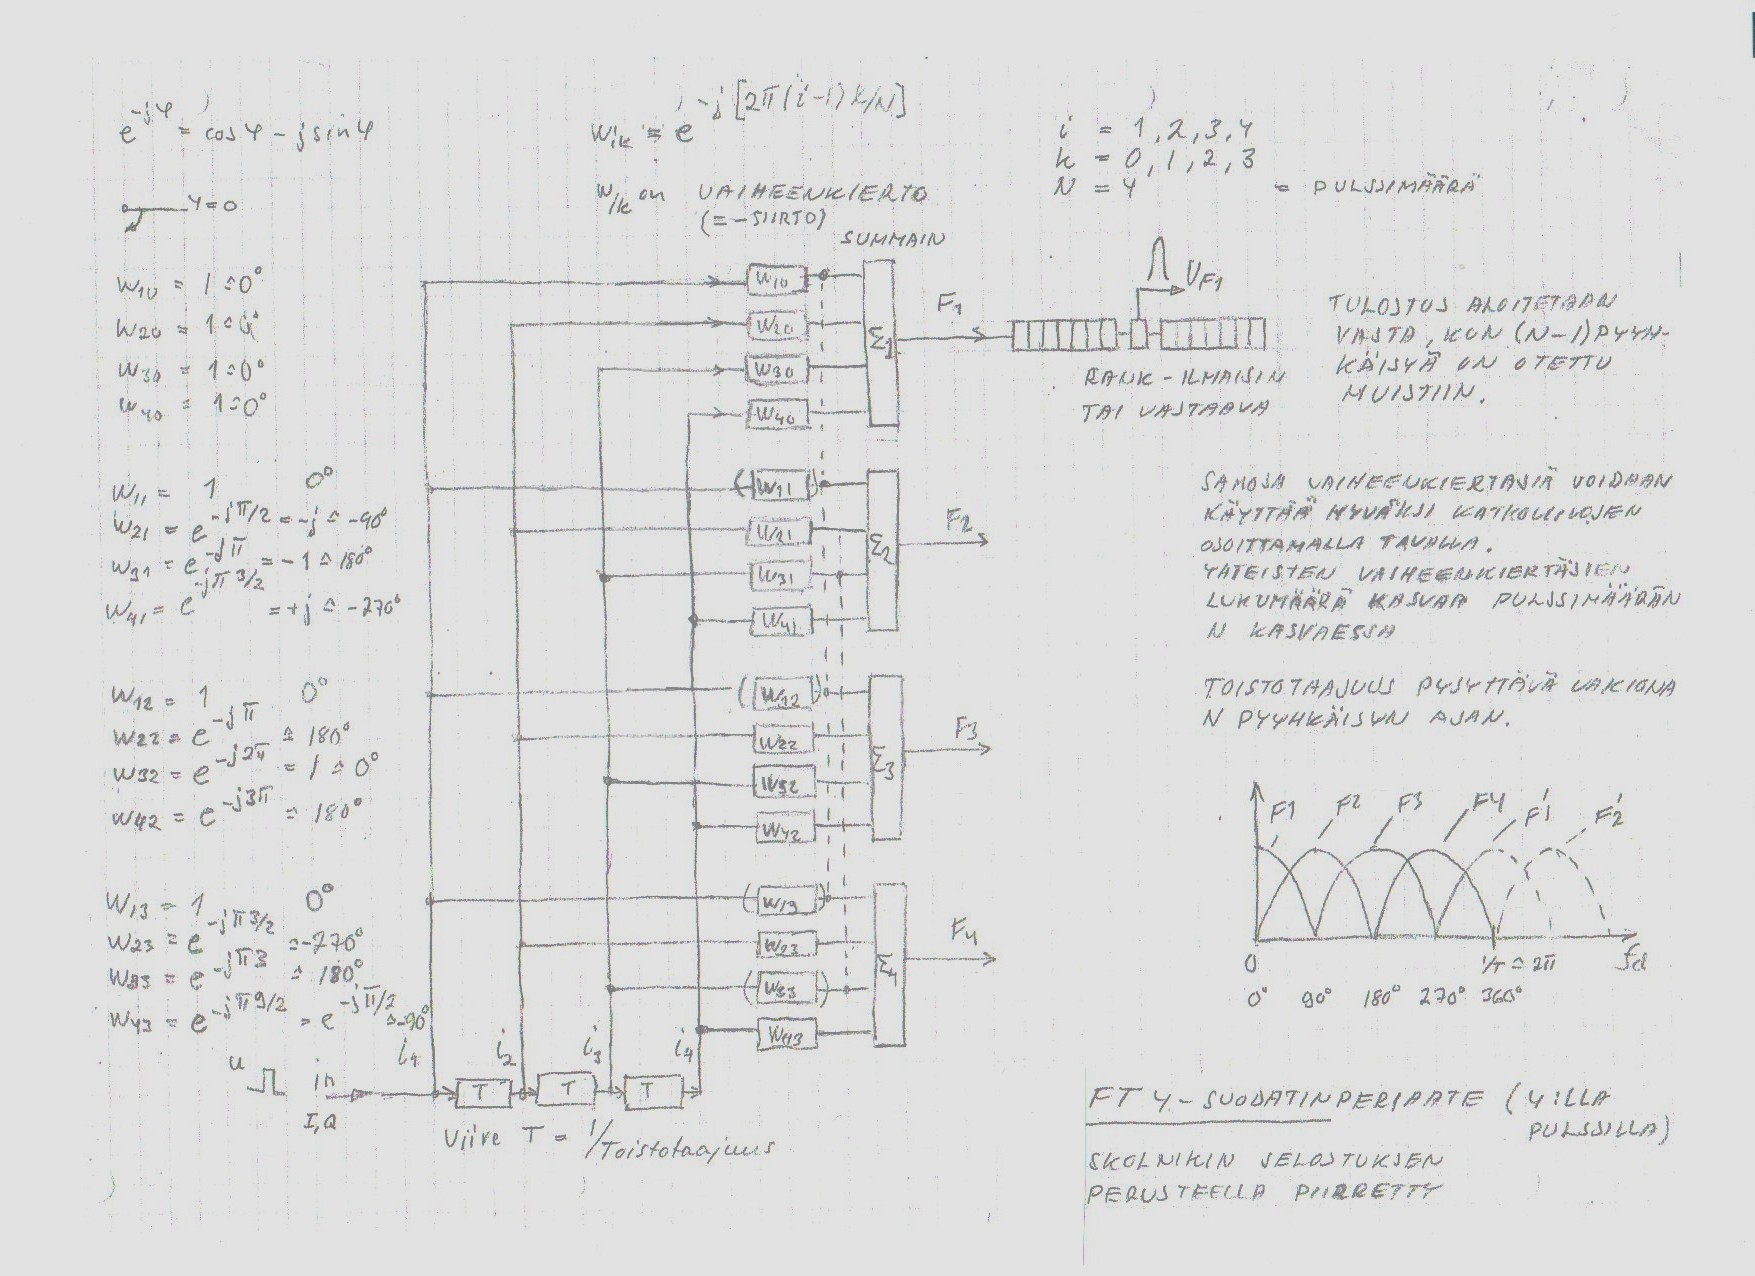 e^-jφ = cos φ - j sin φ
φ=0
W_ik = e^-j[2π(i-1)k/N]
W_ik on VAIHEENKIERTO
(= -SIIRTO)
i = 1,2,3,4
k = 0,1,2,3
N = 4 = PULSSIMÄÄRÄ
W10 = 1 ≙ 0°
W20 = 1 ≙ 0°
W30 = 1 ≙ 0°
W40 = 1 ≙ 0°
W11 = 1 0°
W21 = e^-jπ/2 = -j ≙ -90°
W31 = e^-jπ = -1 ≙ 180°
W41 = e^-jπ3/2 = +j ≙ -270°
W12 = 1 0°
W22 = e^-jπ ≙ 180°
W32 = e^-j2π = 1 ≙ 0°
W42 = e^-j3π ≙ 180°
W13 = 1 0°
W23 = e^-jπ3/2 ≙ -270°
W33 = e^-jπ3 ≙ 180°
W43 = e^-jπ9/2 = e^-jπ/2 ≙ -90°
SUMMAIN
W10
W20
W30
W40
Σ1
F1
(W11)
W21
W31
W41
Σ2
F2
(W12)
W22
W32
W42
Σ3
F3
(W13)
W23
(W33)
W43
Σ4
F4
i1 i2 i3 i4
u in
I,Q
T T T
Viive T = 1/Toistotaajuus
UF1
RANK-ILMAISIN
TAI VASTAAVA
TULOSTUS ALOITETAAN
VASTA, KUN (N-1) PYYH-
KÄISYÄ ON OTETTU
MUISTIIN.
SAMOJA VAIHEENKIERTÄJIÄ VOIDAAN
KÄYTTÄÄ HYVÄKSI KATKOVIIVOJEN
OSOITTAMALLA TAVALLA.
YHTEISTEN VAIHEENKIERTÄJIEN
LUKUMÄÄRÄ KASVAA PULSSIMÄÄRÄN
N KASVAESSA
TOISTOTAAJUUS PYSYTTÄVÄ VAKIONA
N PYYHKÄISYN AJAN.
F1 F2 F3 F4 F1' F2'
0 1/T = 2π fd
0° 90° 180° 270° 360°
FT 4-SUODATINPERIAATE (4:LLA
PULSSILLA)
SKOLNIKIN SELOSTUKSEN
PERUSTEELLA PIIRRETTY